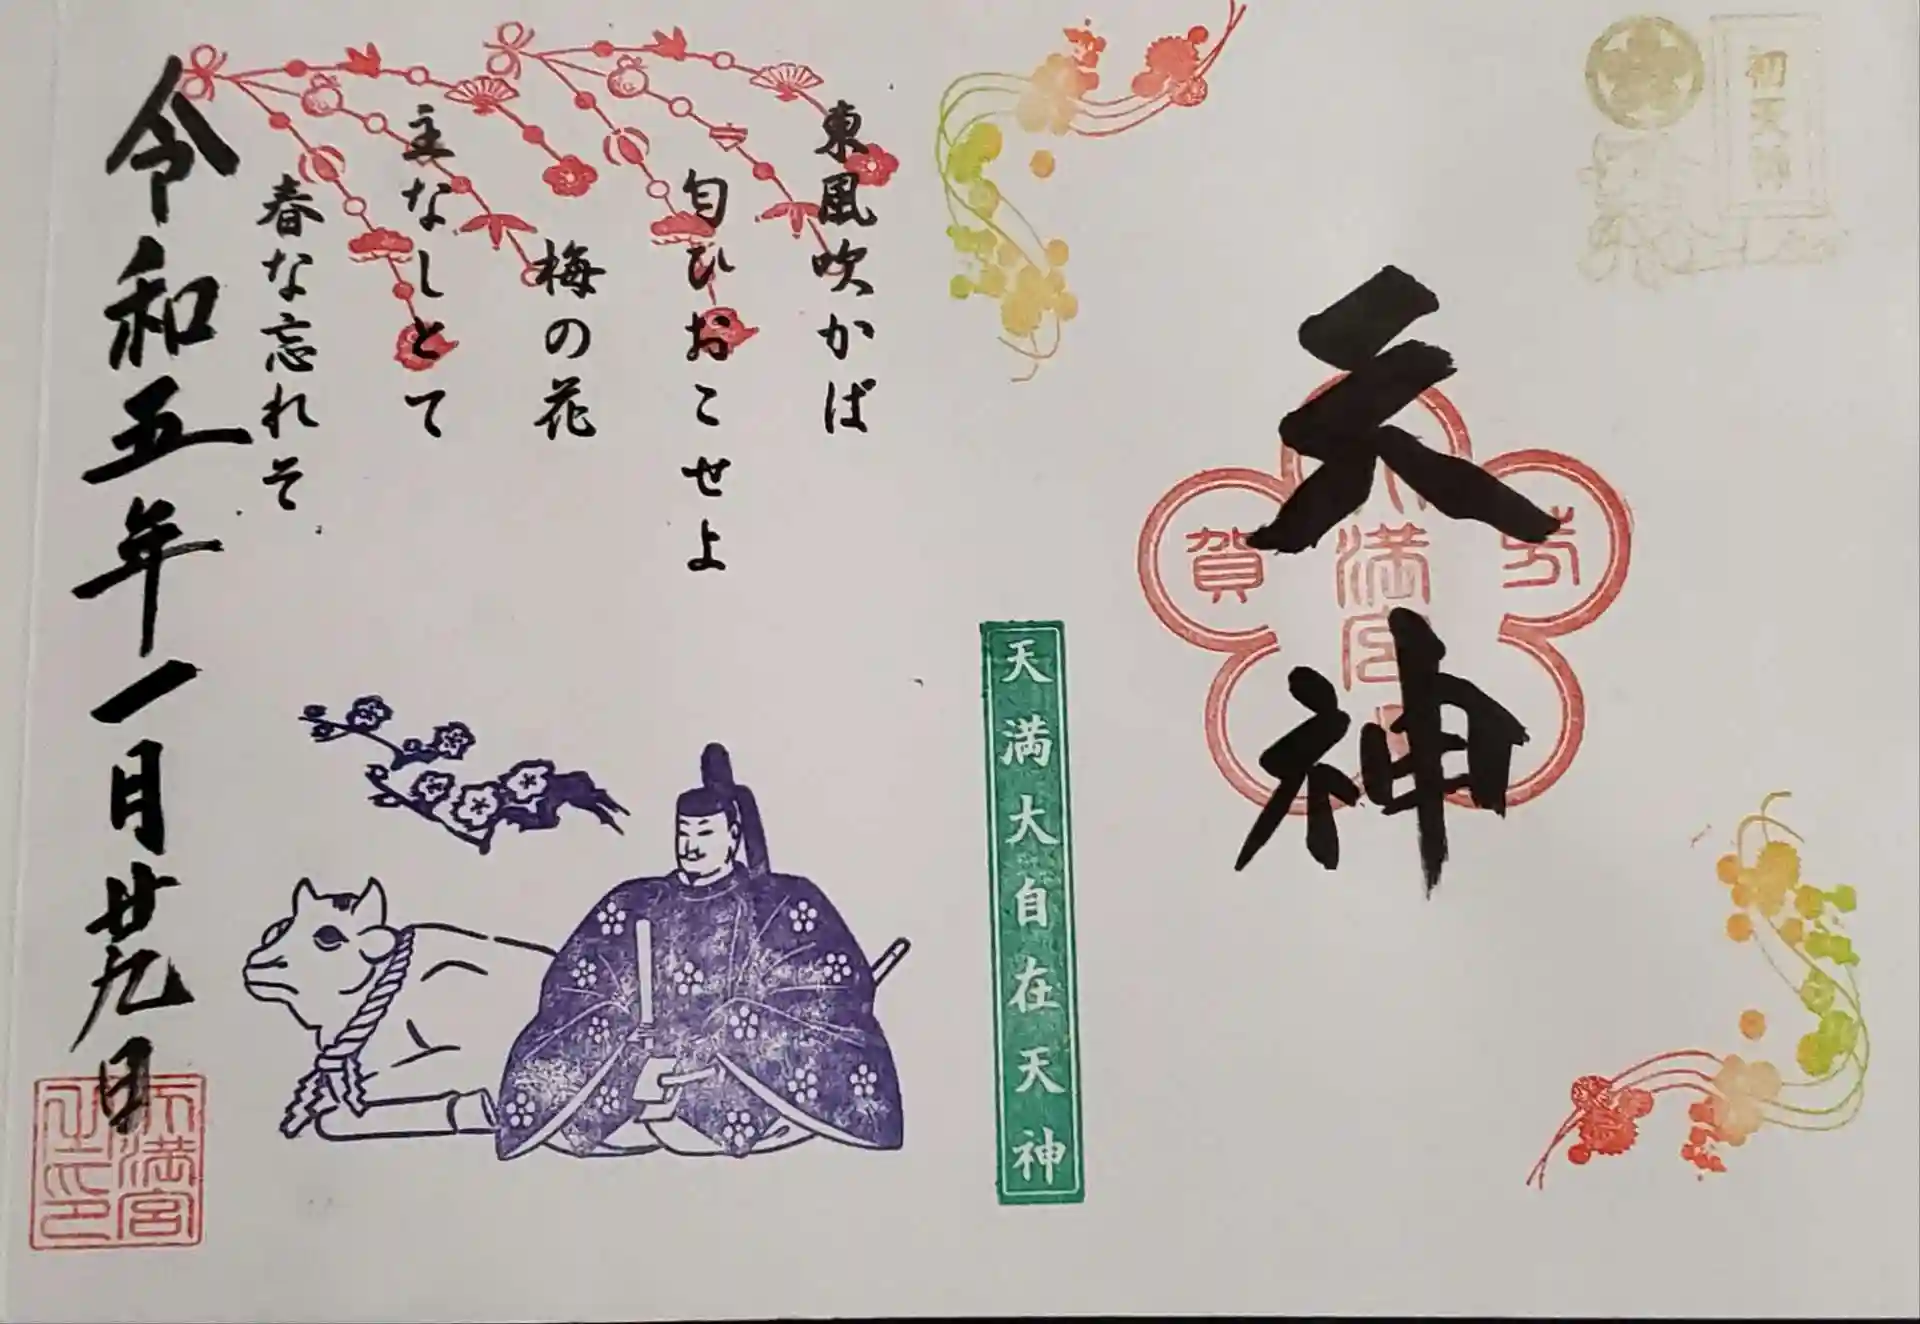 初天神
天神
芳
天満宮
賀
天満大自在天神
東風吹かば
匂ひおこせよ
梅の花
主なしとて
春な忘れそ
令和五年一月廿九日
天満宮
之印